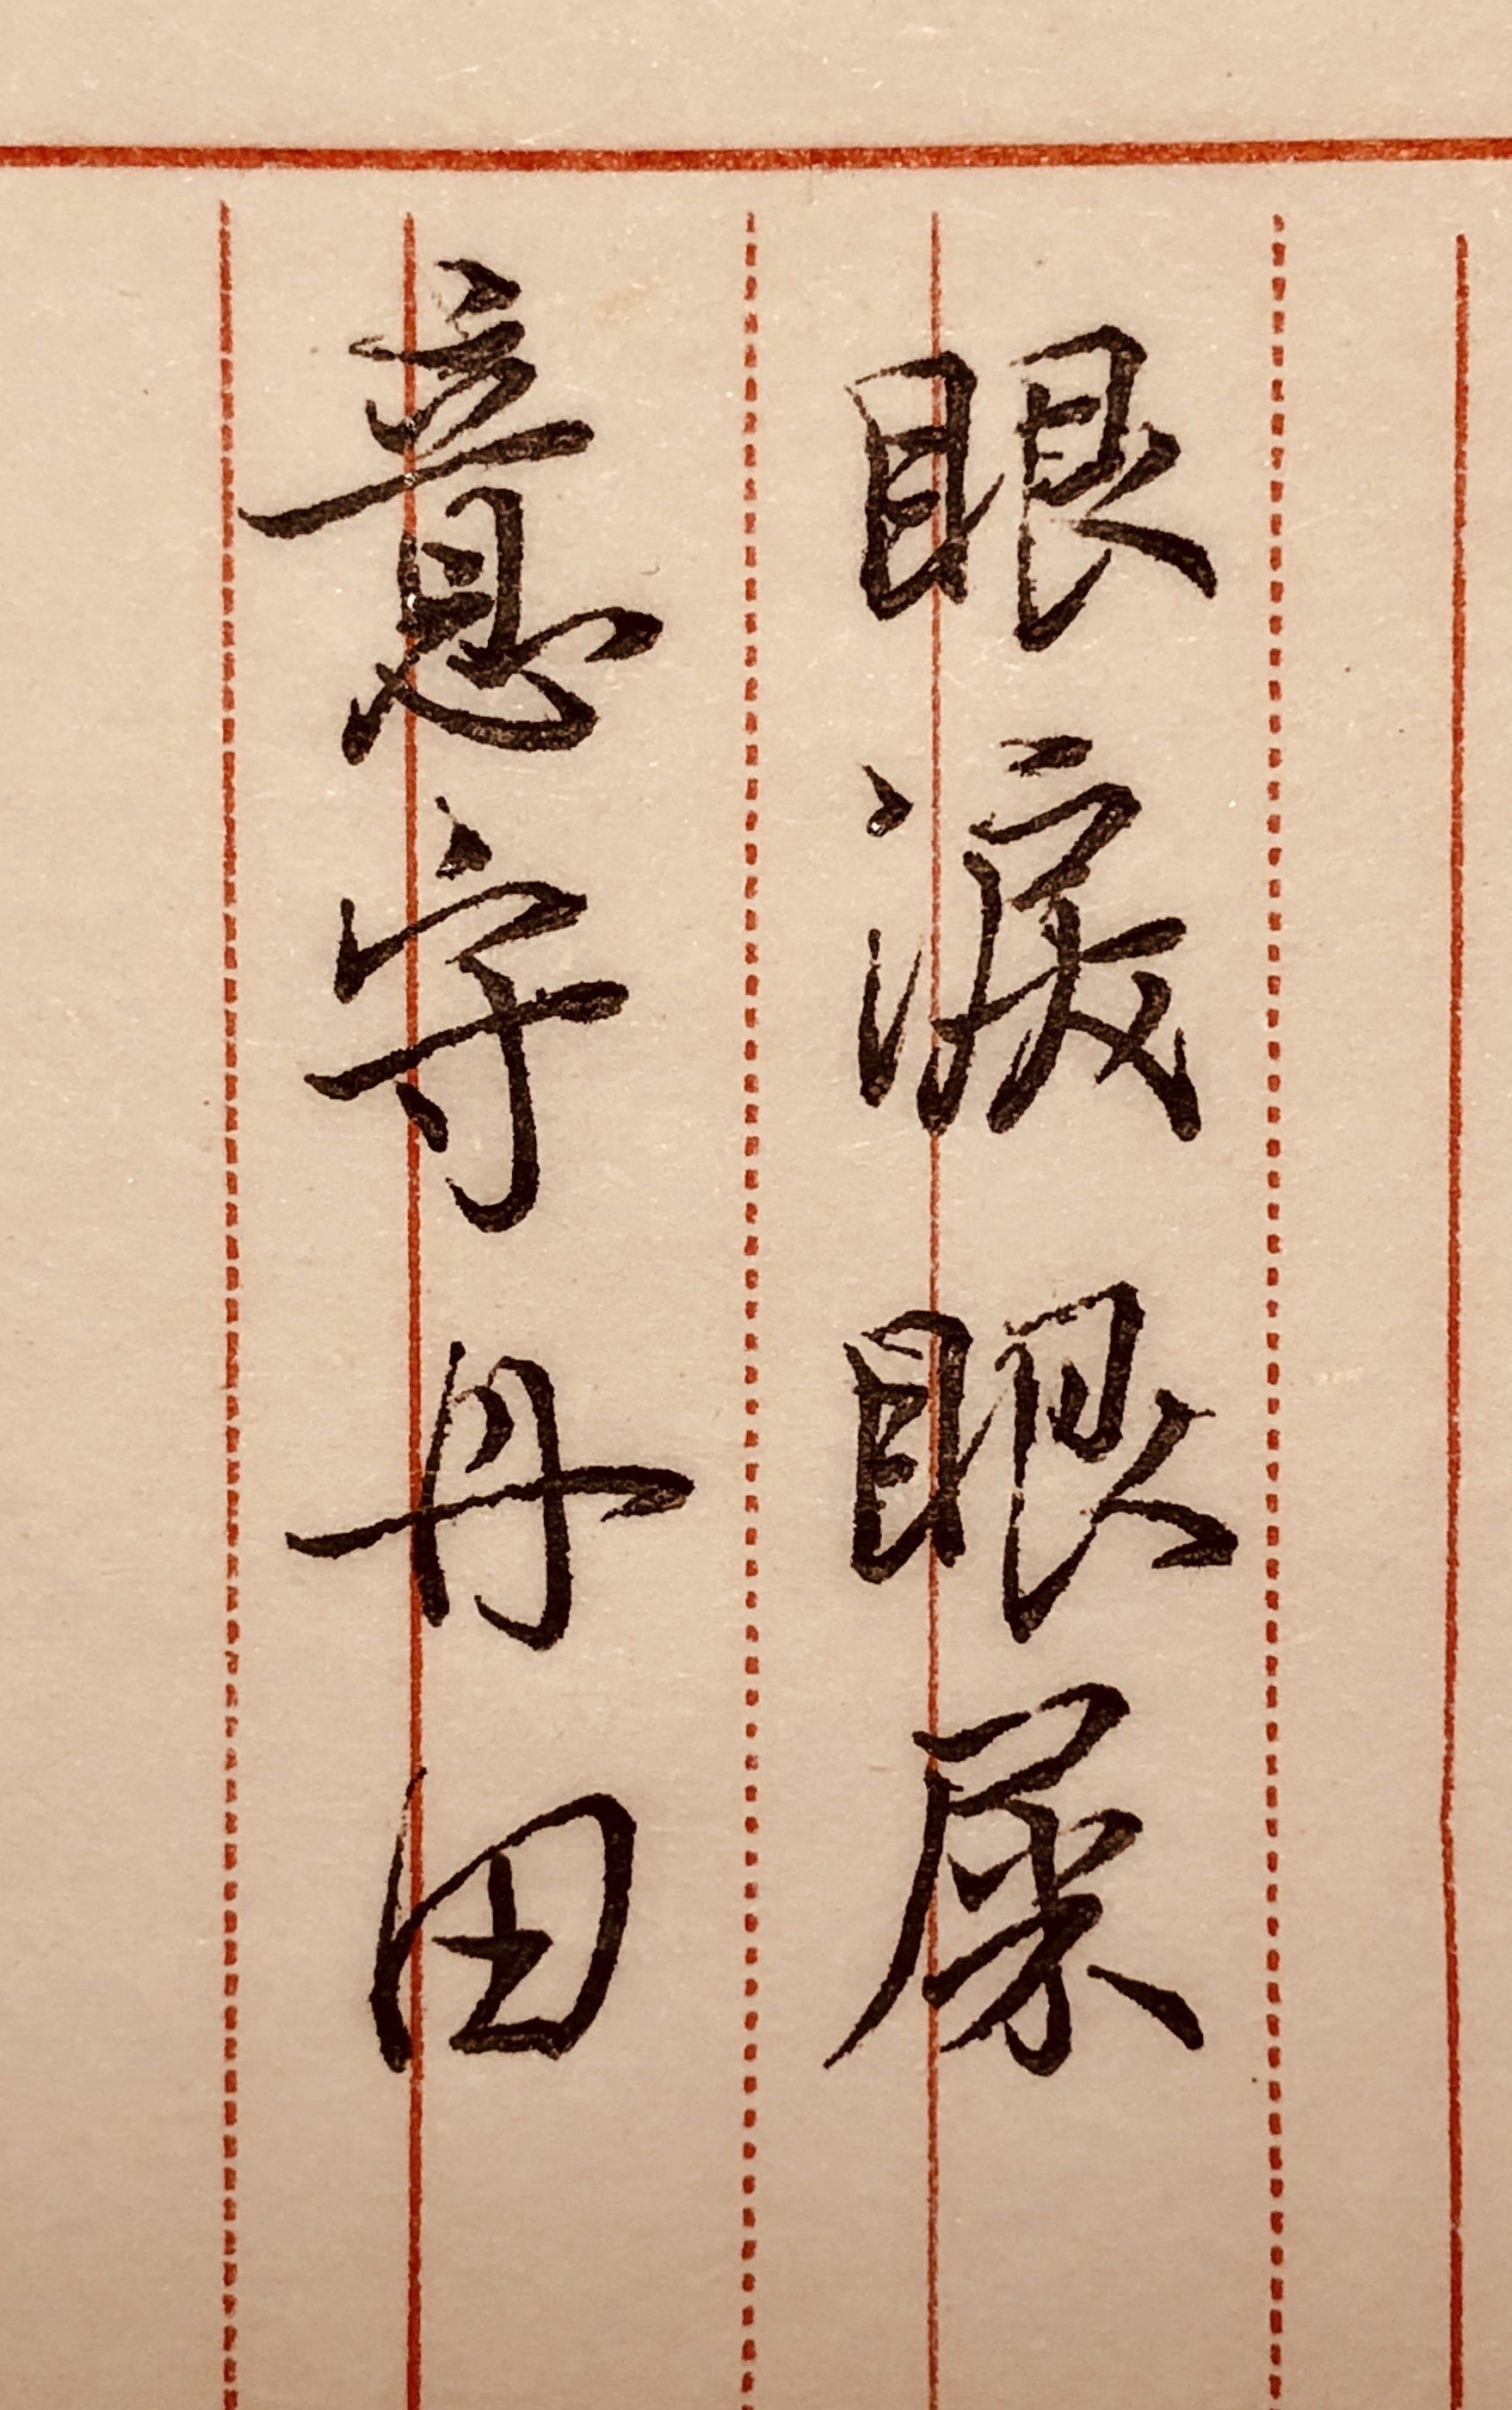 眼淚眼屎
意守丹田